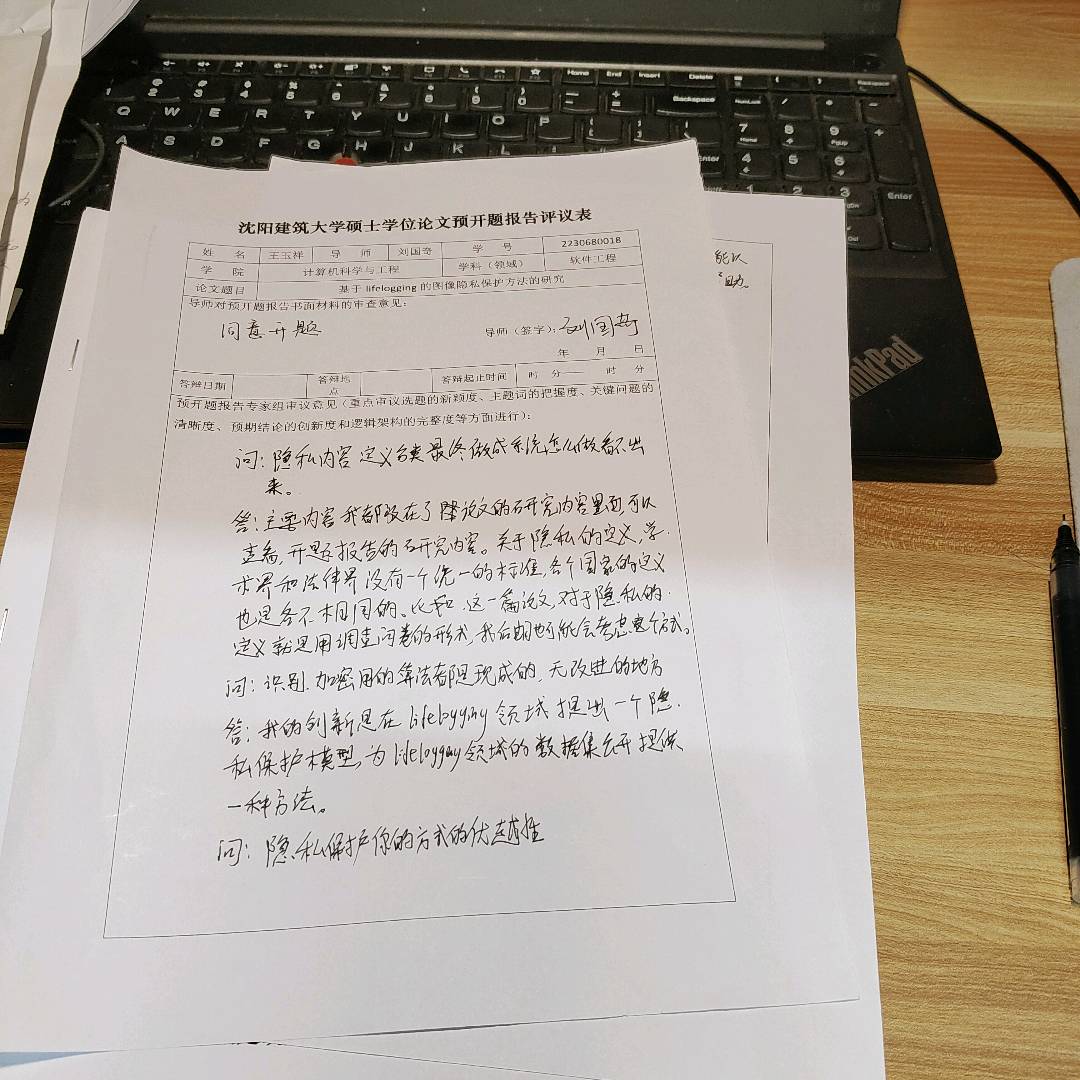 沈阳建筑大学硕士学位论文预开题报告评议表
姓 名 王玉祥 导 师 刘国奇 学 号 2230680018
学 院 计算机科学与工程 学科（领域） 软件工程
论文题目 基于 lifelogging 的图像隐私保护方法的研究
导师对预开题报告书面材料的审查意见：
同意开题 导师（签字）：刘国奇
年 月 日
答辩日期 答辩地点 答辩起止时间 时 分—— 时 分
预开题报告专家组审议意见（重点审议选题的新颖度、主题词的把握度、关键问题的
清晰度、预期结论的创新度和逻辑架构的完整度等方面进行）：
问：隐私内容定义分类最终做成系统怎么做看不出
来。
答：主要内容我都放在了论文的研究内容里面,可以
查看,开题报告的研究内容。关于隐私的定义,学
术界和法律界没有一个统一的标准,各个国家的定义
也是各不相同的、比如,这一篇论文,对于隐私的
定义就是用调查问卷的形式,我后期也可能会考虑这个方式。
问：识别,加密用的算法都是现成的,无改进的地方
答：我的创新是在 lifelogging 领域提出一个隐
私保护模型,为 lifelogging 领域的数据集公开提供
一种方法。
问：隐私保护你的方式的优越性
能以
助。
ThinkPad
Home End Insert Delete
Backspace
NumLock
Q W E R T Y U I O P
A S D F G H J K L
Enter
7 8 9
4 5 6
1 2 3
Enter